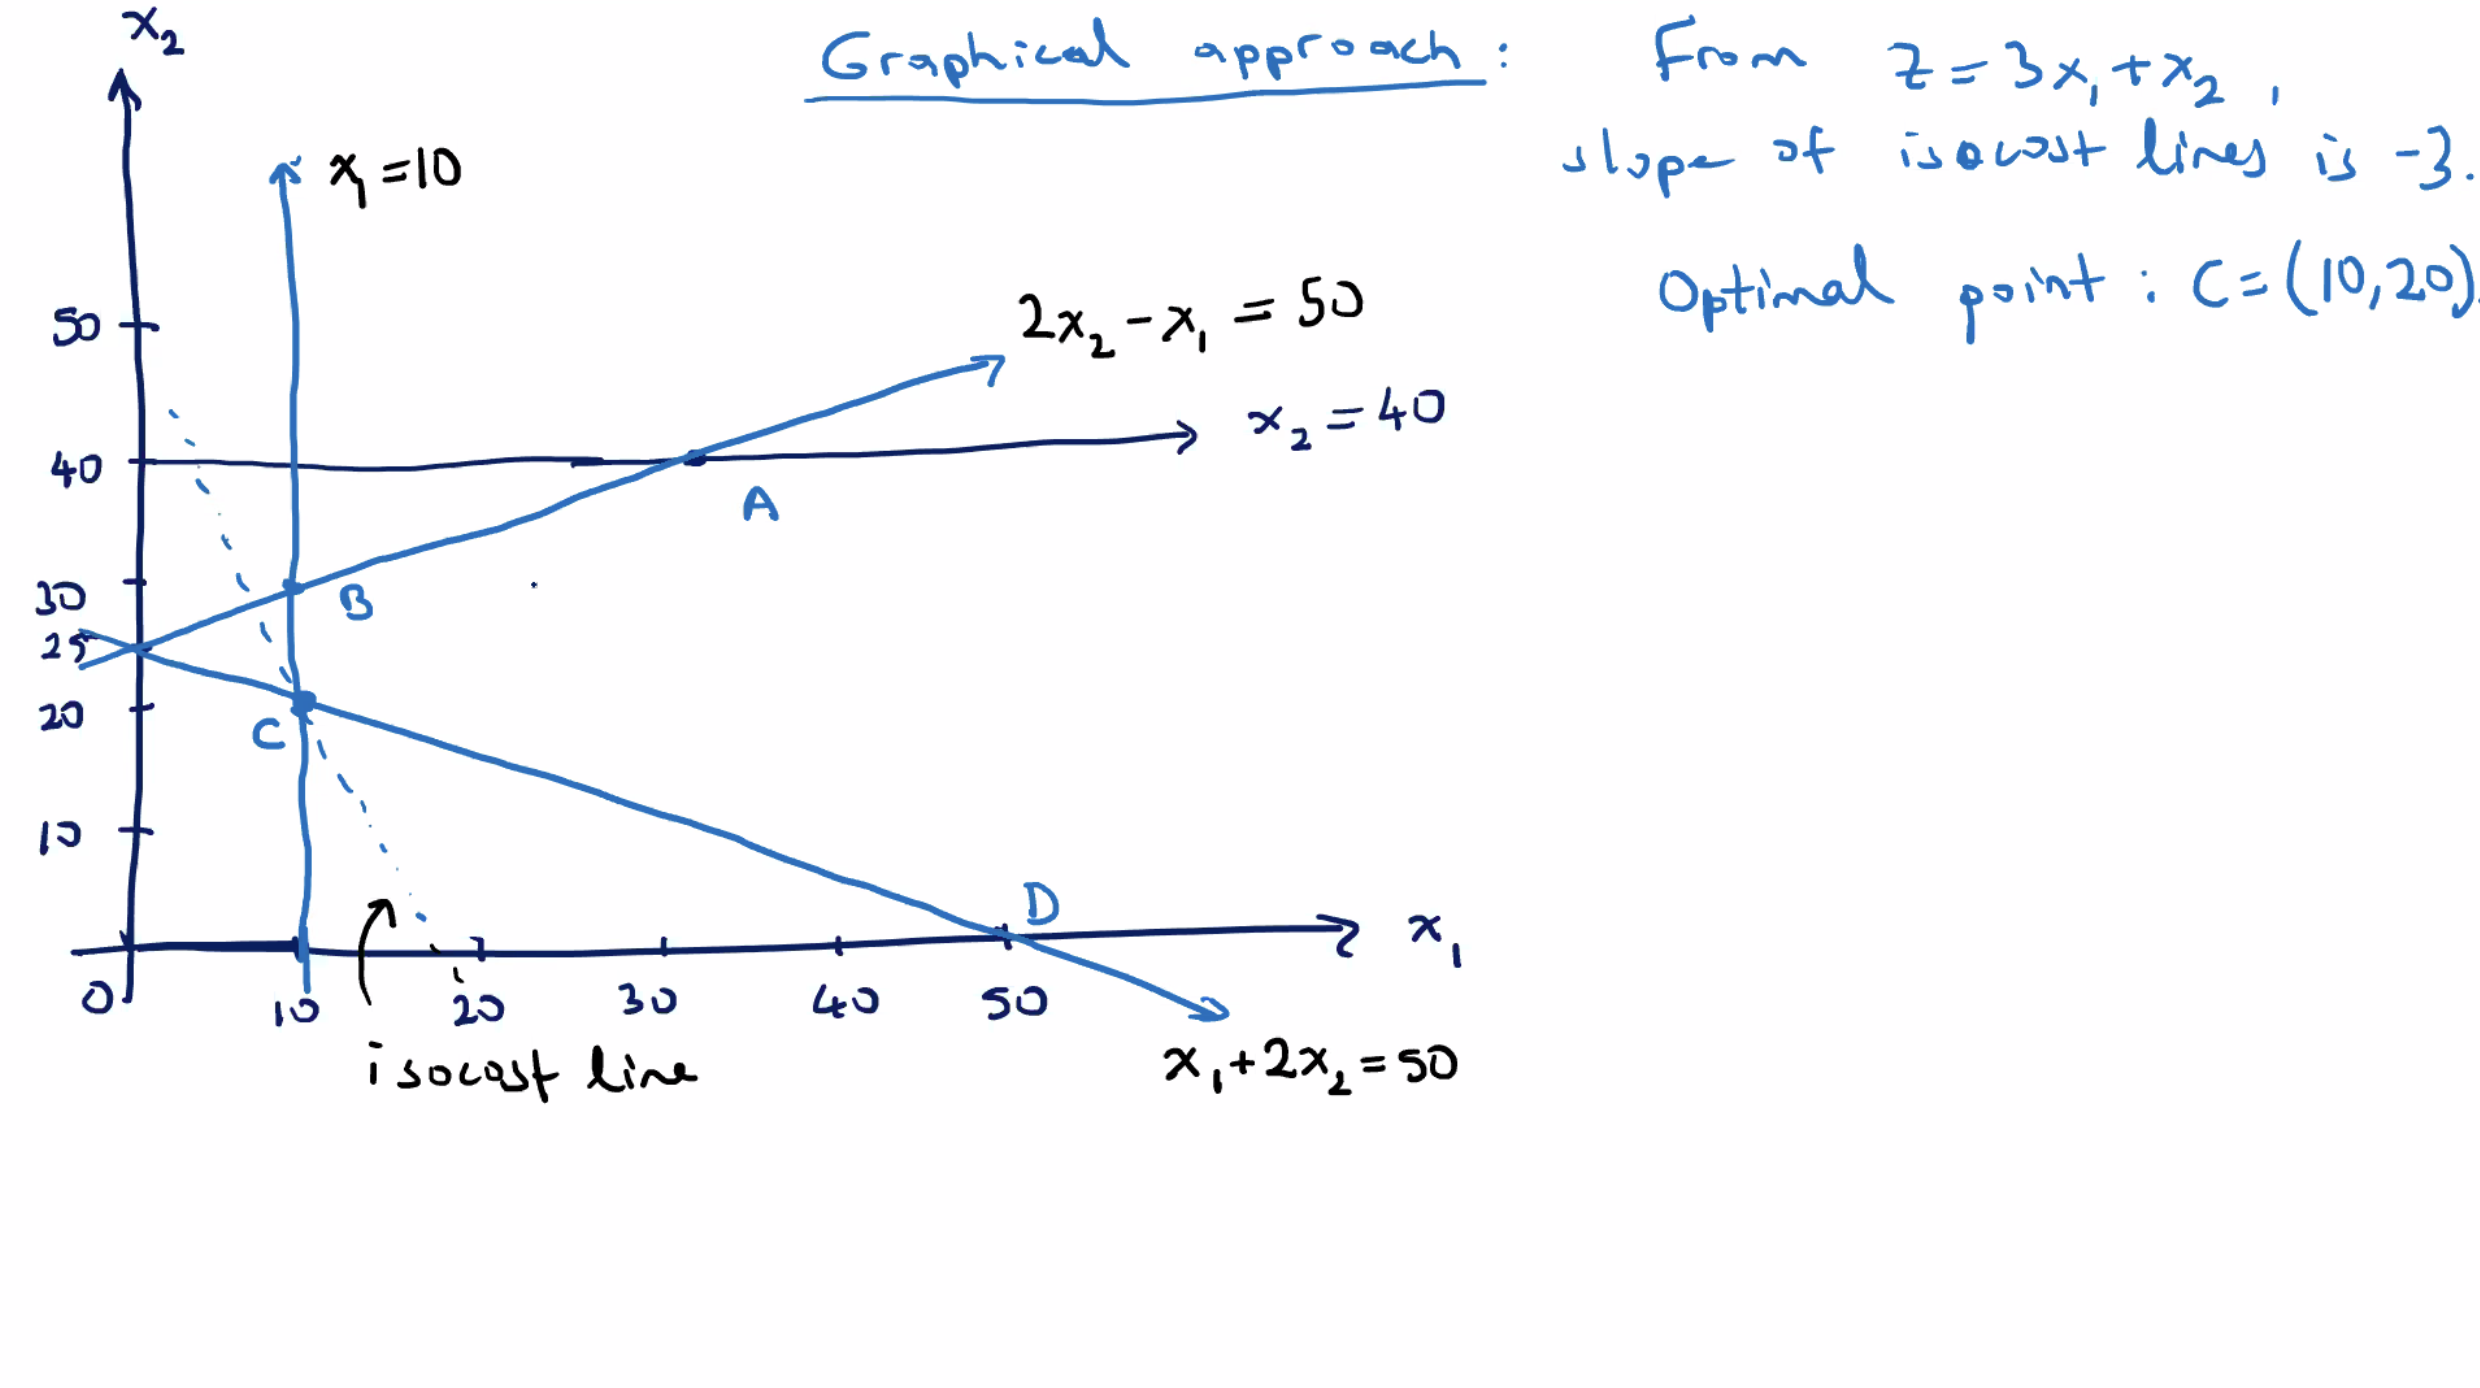 x₂
Graphical approach : From z = 3x₁ + x₂ ,
slope of isocost lines is -3.
x₁ = 10
Optimal point : C = (10,20).
2x₂ - x₁ = 50
50
x₂ = 40
40
A
30
B
25
20
C
10
D
x₁
0
10
20
30
40
50
isocost line
x₁ + 2x₂ = 50